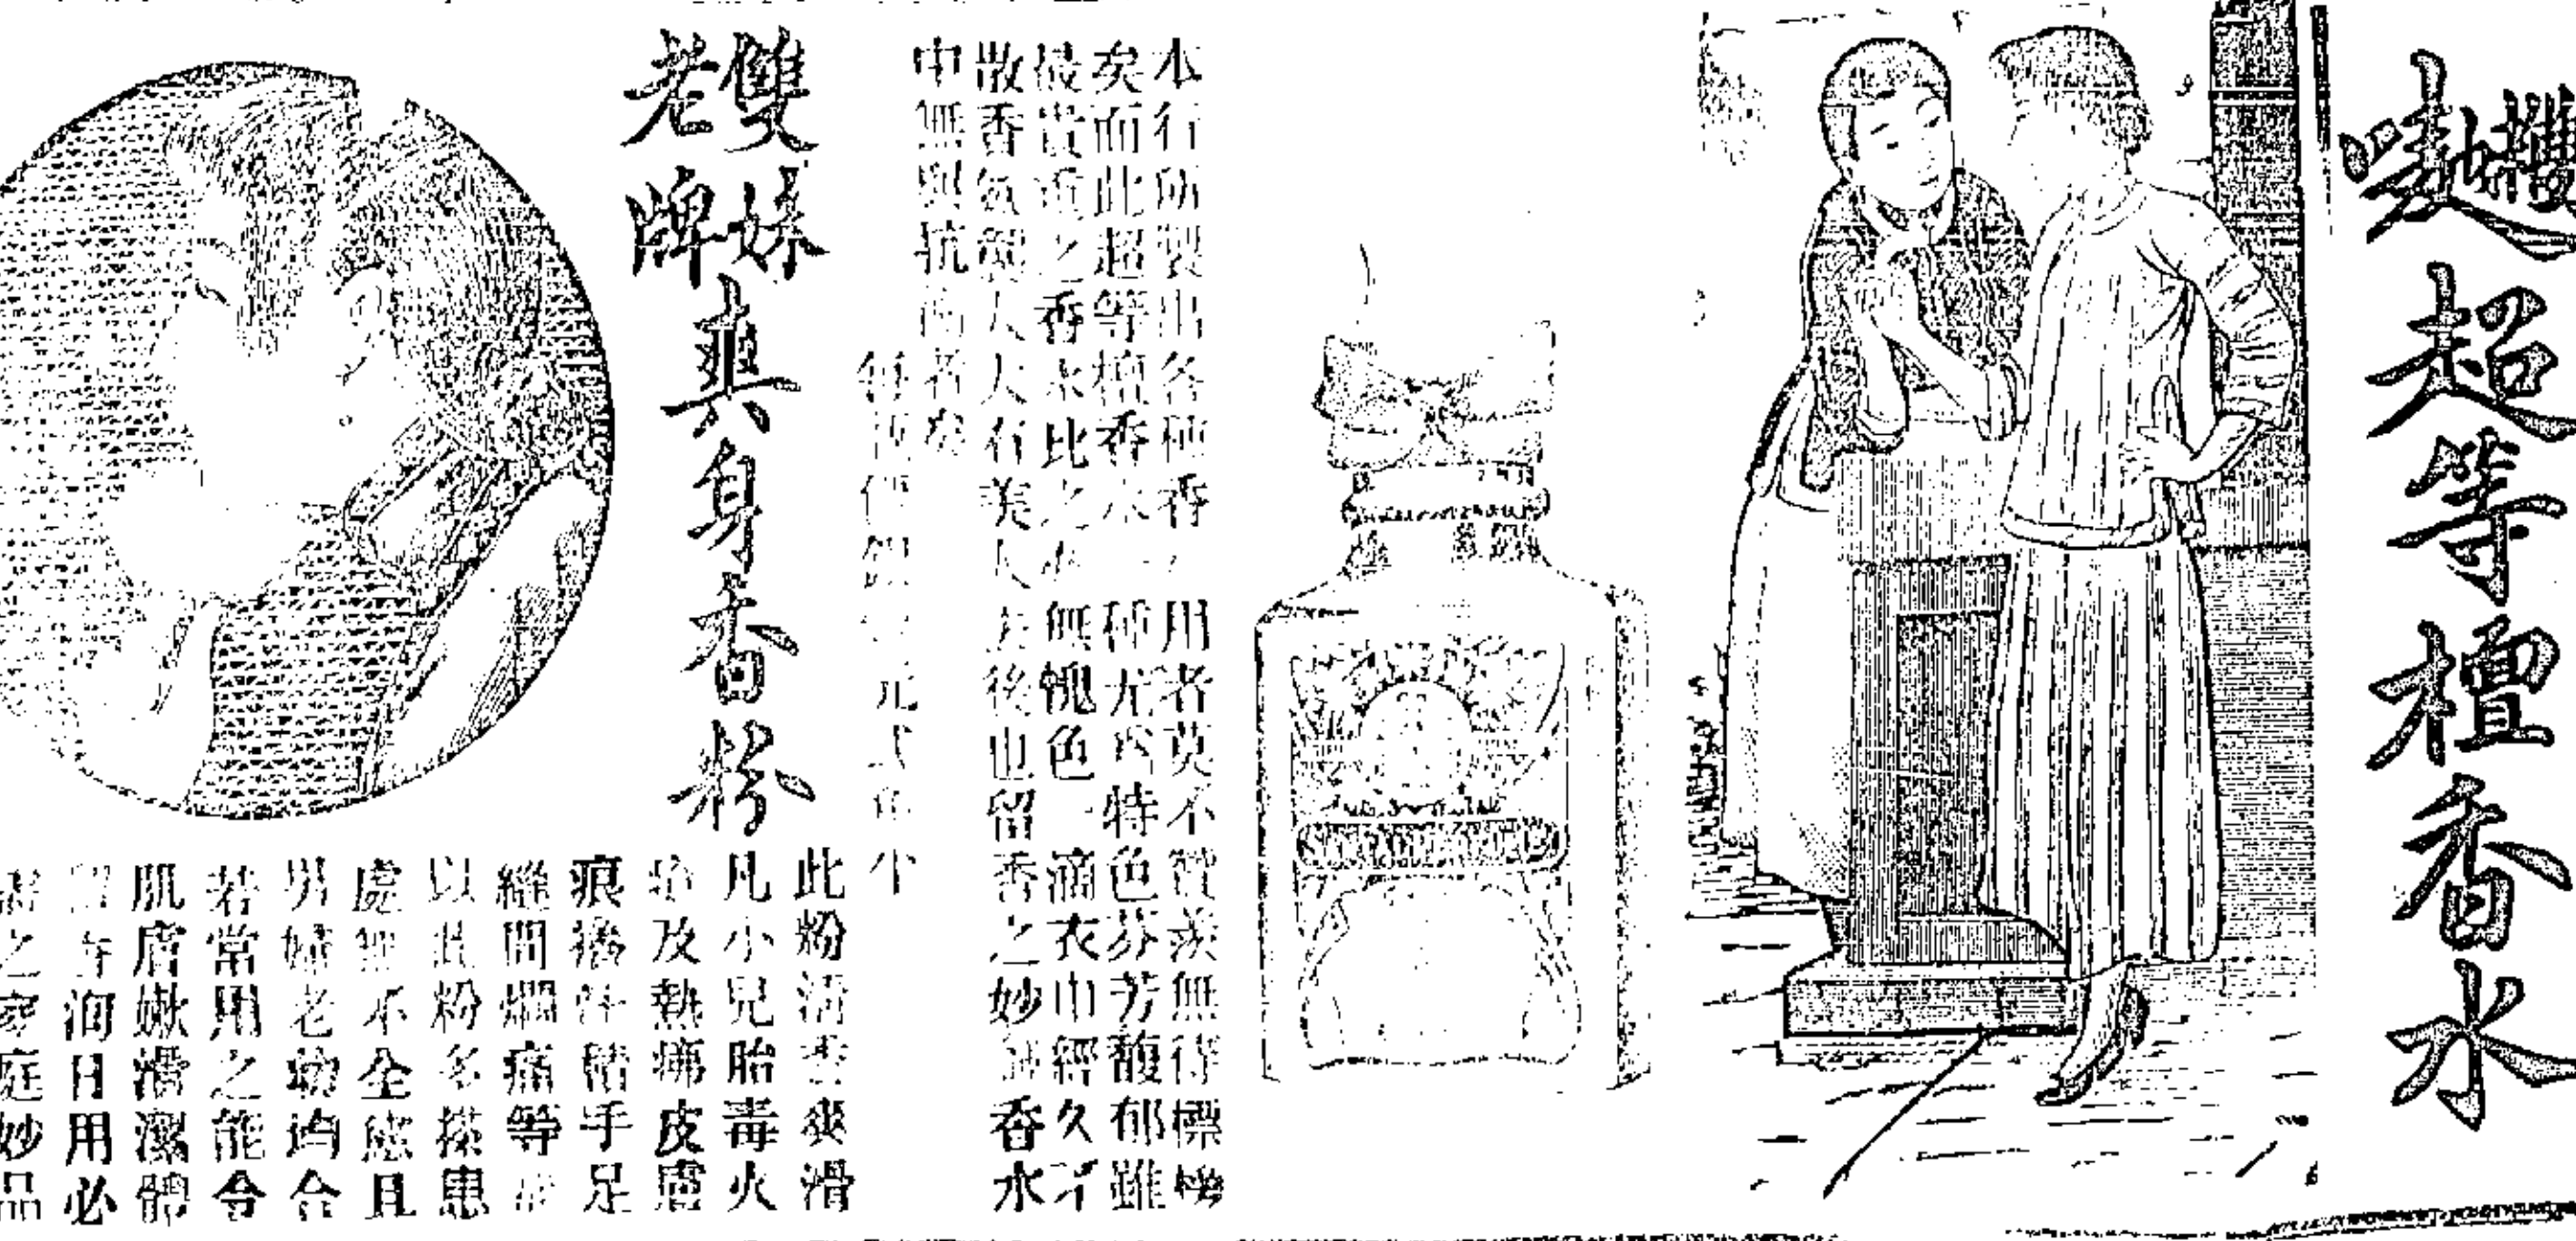 雙妹嘜
超等檀香水
本行所製出各種香水用者莫不贊羨無待標榜
矣而此超等檀香水一種尤為特色芬芳馥郁雖
最貴重之香水比之亦無愧色一滴衣巾經久不
散香氣襲人人有美人去後也留香之妙 香水
中無與抗衡者矣
每 價銀 元 小
雙妹
老牌
爽身香粉
此粉清香爽滑
凡小兒胎毒火
疳及熱痱皮膚
痕癢汗積手足
縫間爛痛等
以此粉多搽患
處無不全癒且
男婦老幼均合
若常用之能令
肌膚嫩滑潔體
留香洵日用必
需之家庭妙品